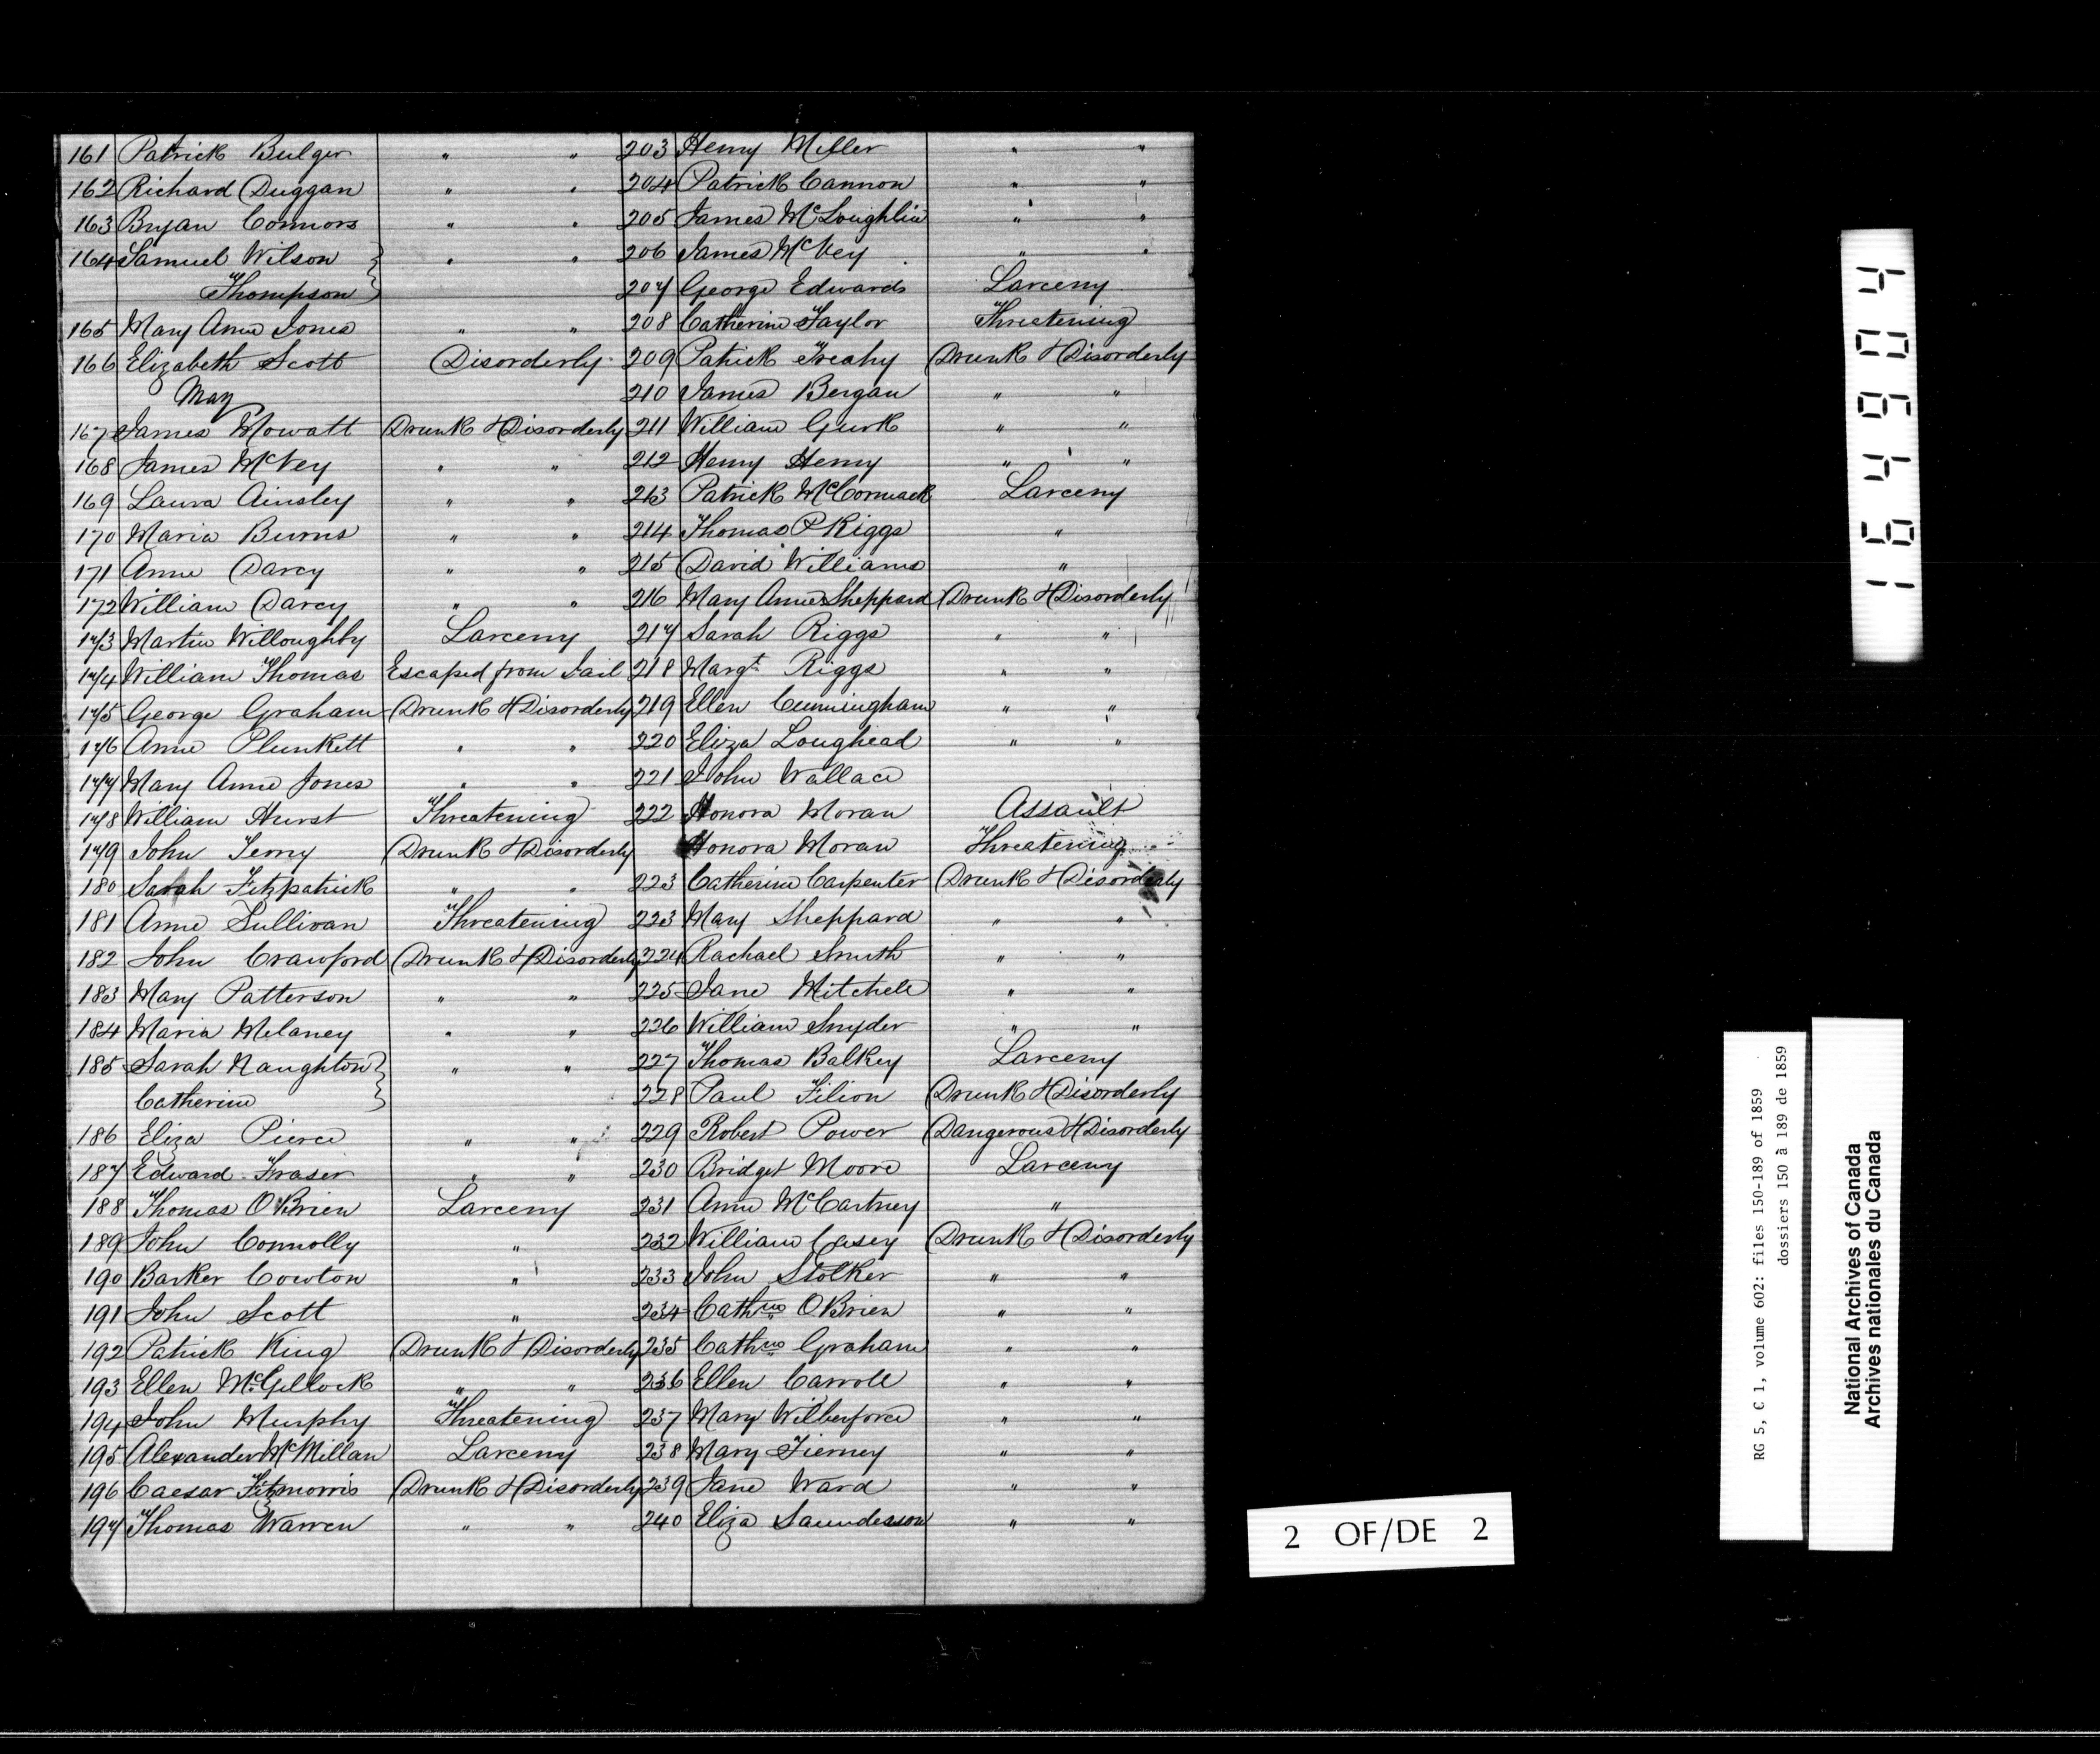 161 Patrick Bulger " "
162 Richard Duggan " "
163 Bryan Connors " "
164 Samuel Wilson } " "
Thompson }
165 Mary Anne Jones " "
166 Elizabeth Scott Disorderly
May
167 James Mowatt Drunk & Disorderly
168 James McVey " "
169 Laura Ainsley " "
170 Maria Burns " "
171 Anne Darcy " "
172 William Darcy " "
173 Martin Willoughby Larceny
174 William Thomas Escaped from Jail
175 George Graham Drunk & Disorderly
176 Anne Plunkett " "
177 Mary Anne Jones " "
178 William Hurst Threatening
179 John Terry Drunk & Disorderly
180 Sarah Fitzpatrick " "
181 Anne Sullivan Threatening
182 John Crawford Drunk & Disorderly
183 Mary Patterson " "
184 Maria Melaney " "
185 Sarah Naughton } " "
Catherine }
186 Eliza Pierce " "
187 Edward Fraser " "
188 Thomas O'Brien Larceny
189 John Connolly "
190 Barker Cowton "
191 John Scott "
192 Patrick King Drunk & Disorderly
193 Ellen McGillock " "
194 John Murphy Threatening
195 Alexander McMillan Larceny
196 Caesar Fitzmorris Drunk & Disorderly
197 Thomas Warren " "
203 Henry Miller " "
204 Patrick Cannon " "
205 James McLoughlin " "
206 James McVey " "
207 George Edwards Larceny
208 Catherine Taylor Threatening
209 Patrick Treahy Drunk & Disorderly
210 James Bergan " "
211 William Gurk " "
212 Henry Henry " "
213 Patrick McCormack Larceny
214 Thomas P Riggs "
215 David Williams "
216 Mary Anne Sheppard Drunk & Disorderly
217 Sarah Riggs " "
218 Margt Riggs " "
219 Ellen Cunningham " "
220 Eliza Loughead " "
221 John Wallace
222 Honora Moran Assault
Honora Moran Threatening
223 Catherine Carpenter Drunk & Disorderly
223 Mary Sheppard " "
224 Rachael Smith " "
225 Jane Mitchell " "
226 William Snyder " "
227 Thomas Balkey Larceny
228 Paul Filion Drunk & Disorderly
229 Robert Power Dangerous & Disorderly
230 Bridget Moore Larceny
231 Anne McCartney "
232 William Casey Drunk & Disorderly
233 John Stolker " "
234 Cathne O'Brien " "
235 Cathne Graham " "
236 Ellen Carroll " "
237 Mary Wilberforce " "
238 Mary Tierney " "
239 Jane Ward " "
240 Eliza Saunderson " "
2 OF/DE 2
RG 5, C 1, volume 602: files 150-189 of 1859
dossiers 150 à 189 de 1859
National Archives of Canada
Archives nationales du Canada